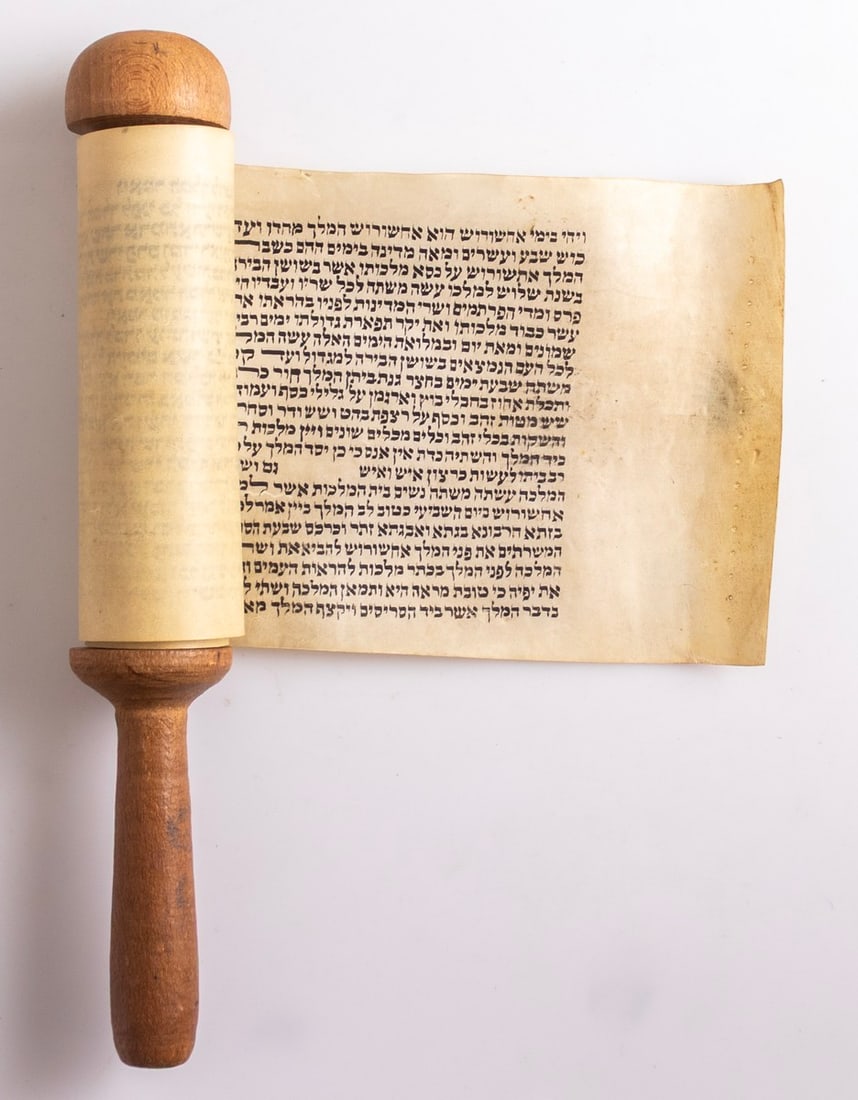 ויהי בימי אחשורוש הוא אחשורוש המלך מהדו ועד
כוש שבע ועשרים ומאה מדינה בימים ההם
המלך אחשורוש על כסא מלכותו אשר בשושן
בשנת שלוש למלכו עשה משתה לכל שריו ועבדיו
פרס ומדי הפרתמים ושרי המדינות לפניו בהראתו
עשר כבוד מלכותו ואת יקר תפארת גדולתו ימים
שמונים ומאת יום ובמלואת הימים האלה עשה
לכל העם הנמצאים בשושן הבירה למגדול ועד
משתה שבעת ימים בחצר גנת ביתן המלך חור
ותכלת אחוז בחבלי בוץ וארגמן על גלילי כסף
שש מטות זהב וכסף על רצפת בהט ושש ודר
והשקות בכלי זהב וכלים מכלים שונים ויין מלכות
כיד המלך והשתיה כדת אין אנס כי כן יסד המלך על
רב ביתו לעשות כרצון איש ואיש גם
המלכה עשתה משתה נשים בית המלכות אשר
אחשורוש ביום השביעי כטוב לב המלך ביין אמר
בזתא חרבונא בגתא ואבגתא זתר וכרכס שבעת
המשרתים את פני המלך אחשורוש להביא את
המלכה לפני המלך בכתר מלכות להראות העמים
את יפיה כי טובת מראה היא ותמאן המלכה ושתי
בדבר המלך אשר ביד הסריסים ויקצף המלך